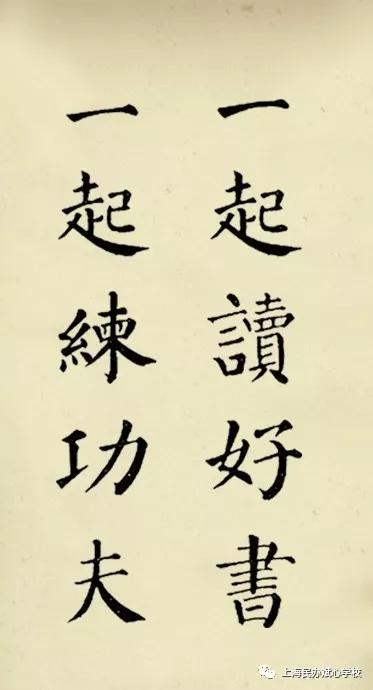 一起讀好書
一起練功夫
上海民办斌心学校